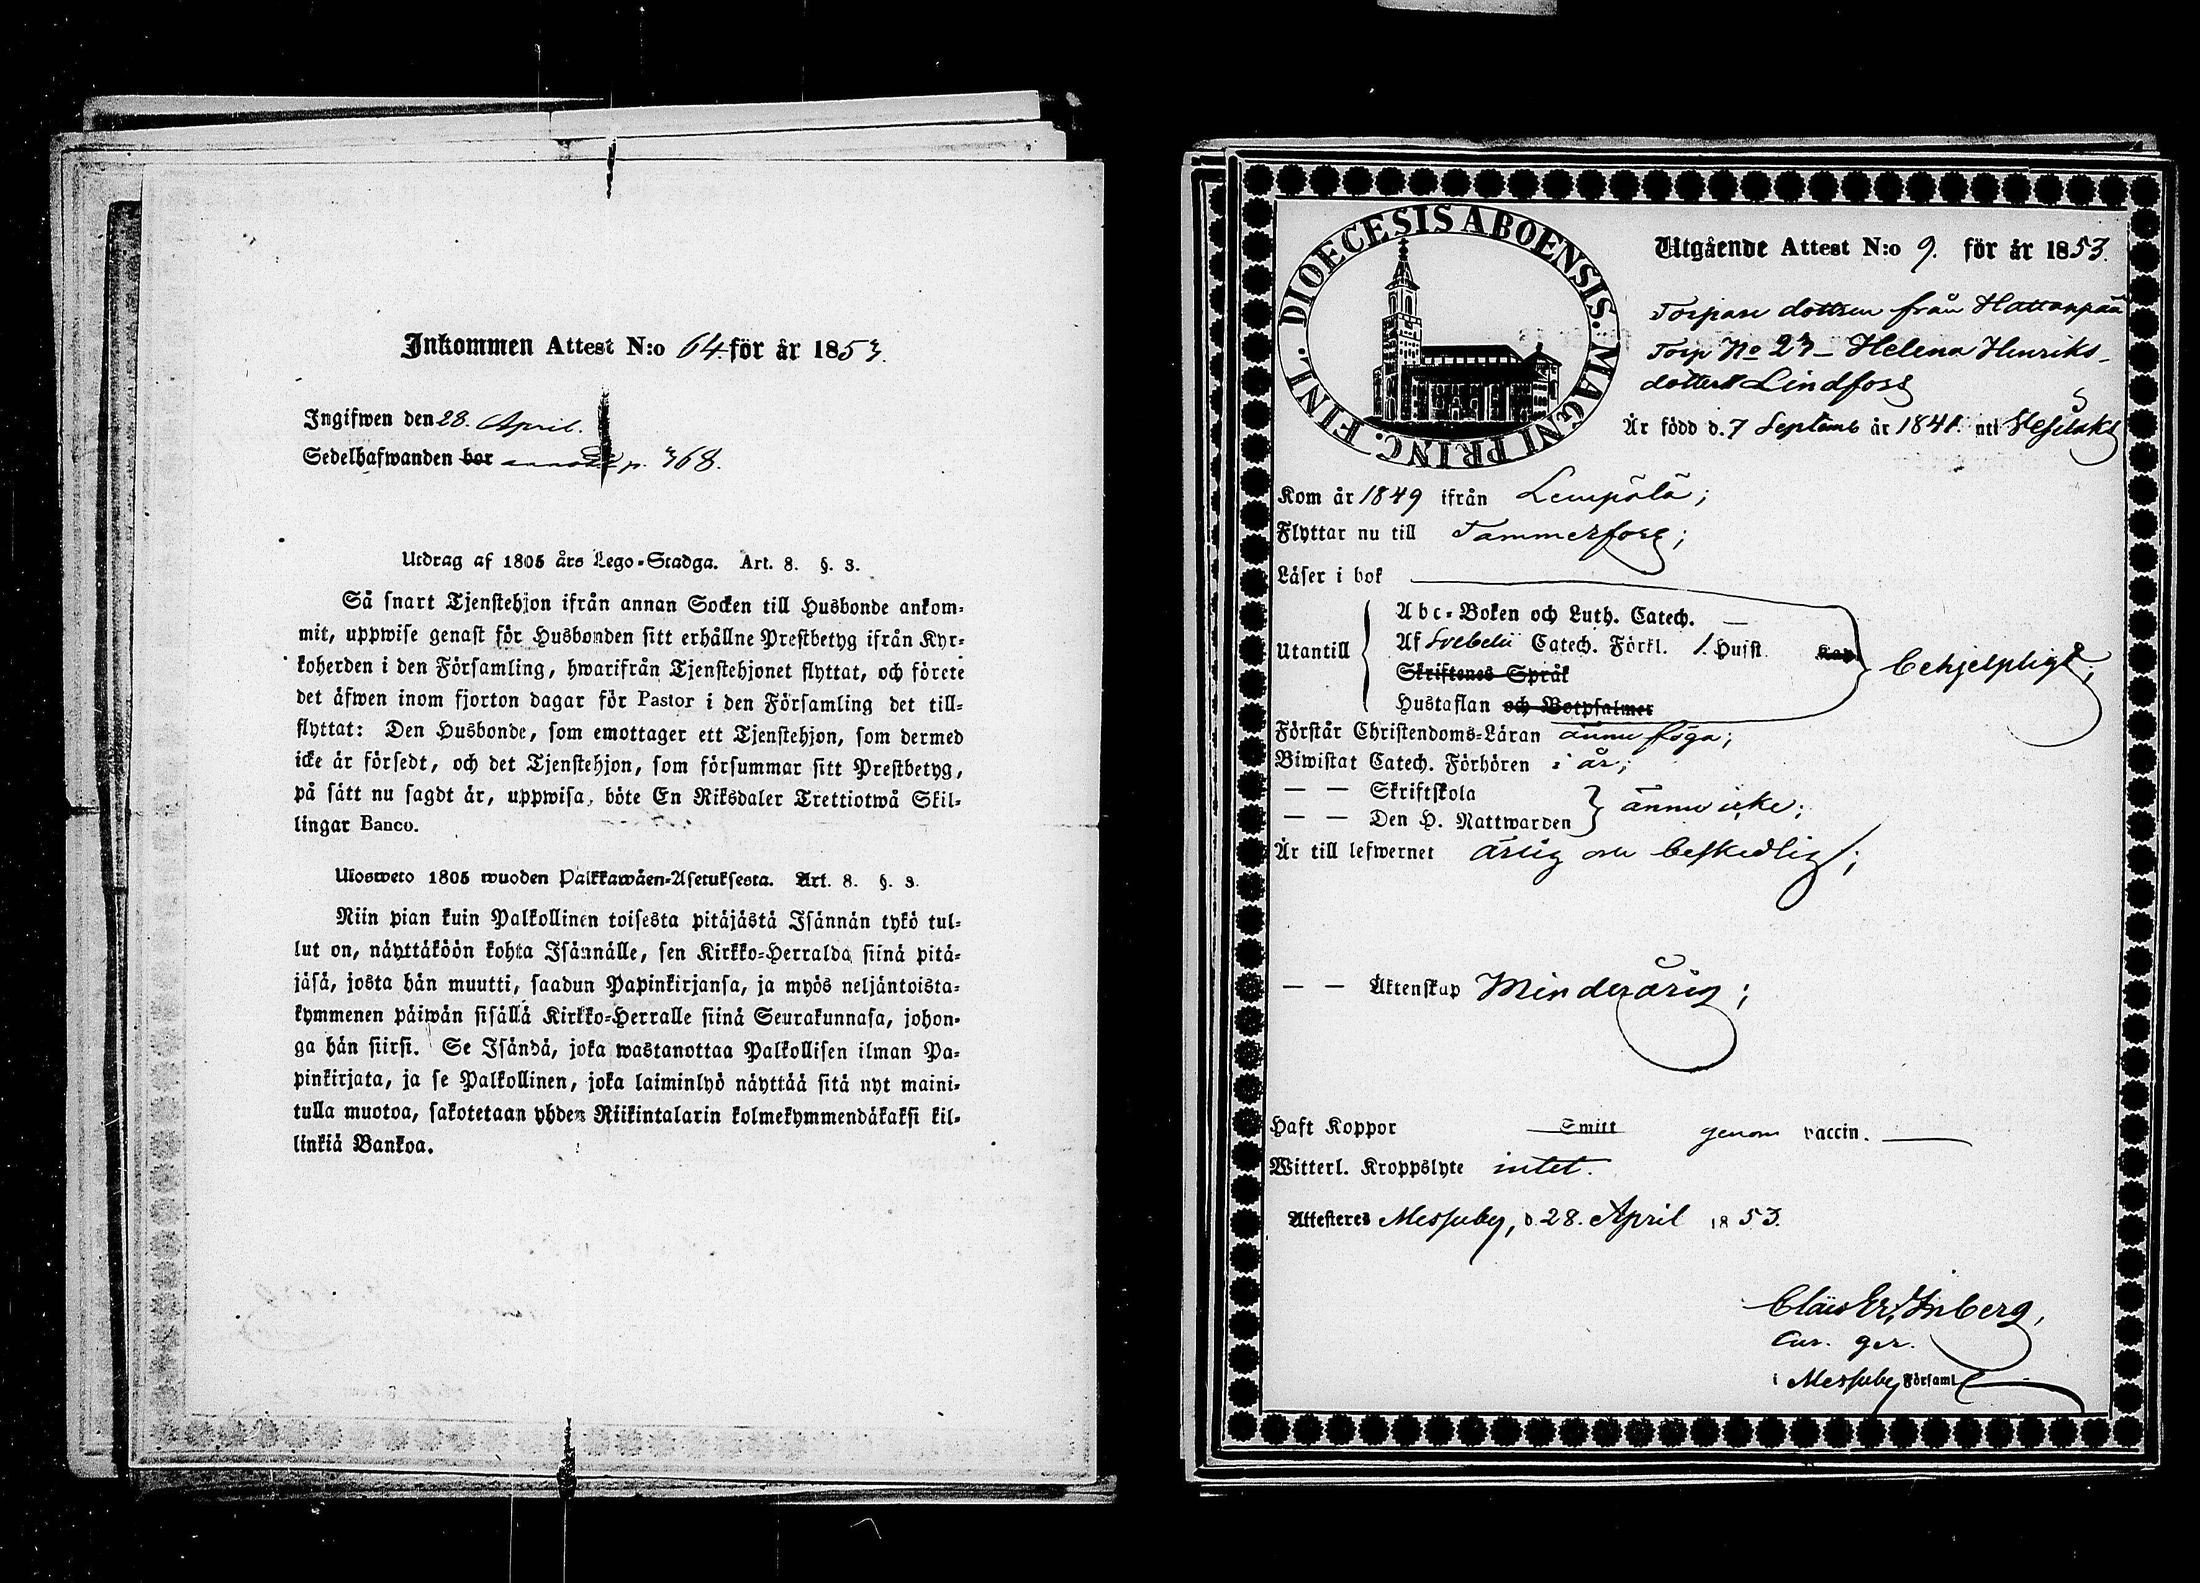 Inkommen Attest N:o 64 för år 1853.
Ingifwen den 28. April.
Sedelhafwanden bor p. 368.
Utdrag af 1805 års Lego-Stadga. Art. 8. §. 3.
Så snart Tjenstehjon ifrån annan Socken till Husbonde ankom-
mit, uppwise genast för Husbonden sitt erhållne Prestbetyg ifrån Kyr-
koherden i den Församling, hwarifrån Tjenstehjonet flyttat, och förete
det äfwen inom fjorton dagar för Pastor i den Församling det till-
flyttat: Den Husbonde, som emottager ett Tjenstehjon, som dermed
icke är försedt, och det Tjenstehjon, som försummar sitt Prestbetyg,
på sätt nu sagdt är, uppwisa, böte En Riksdaler Trettiotwå Skil-
lingar Banco.
Ulosweto 1805 wuoden Palkkawäen-Asetuksesta. Art. 8. §. 3.
Niin pian kuin Palkollinen toisesta pitäjästä Isännän tykö tul-
lut on, näyttäköön kohta Isännälle, sen Kirkko-Herralda siinä pitä-
jäsä, josta hän muutti, saadun Papinkirjansa, ja myös neljäntoista-
kymmenen päiwän sisällä Kirkko-Herralle siinä Seurakunnasa, johon-
ga hän siirsi. Se Isändä, joka wastanottaa Palkollisen ilman Pa-
pinkirjata, ja se Palkollinen, joka laiminlyö näyttää sitä nyt maini-
tulla muotoa, sakotetaan yhden Riikintalarin kolmekymmendäkaksi kil-
linkiä Bankoa.
DIOECESIS ABOENSIS. MAGNI PRINC. FINL.
Utgående Attest N:o 9. för år 1853.
Torpare dottren från Hattanpää
Torp No 23 - Helena Henriks-
dotter Lindfors
Är född d. 7 Septemb år 1841. uti Wesilaks
Kom år 1849 ifrån Lempälä;
Flyttar nu till Tammerfors;
Läser i bok
Utantill Abc-Boken och Luth. Catech. —
Af Svebelii Catech. Förkl. 1. Hufst. Kap. behjelpligt;
Skriftenes Språk
Hustaflan och Botpsalmer
Förstår Christendoms-Läran ännu föga;
Biwistat Catech. Förhören i år;
— — Skriftskola
— — Den H. Nattwarden ännu icke;
Är till lefwernet ärlig och beskedlig;
— — Äktenskap Minderårig;
Haft Koppor Smitt genom vaccin.
Witterl. Kroppslyte intet.
Attesteres Messuby, d. 28. April 1853.
Cur. ger.
i Messuby Församl